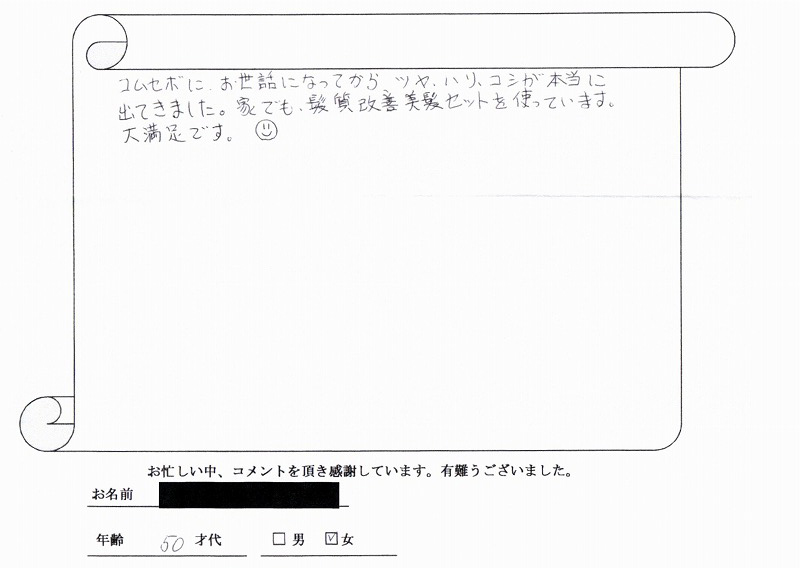 コムセボに、お世話になってから ツヤ、ハリ、コシが本当に
出てきました。家でも、髪質改善美髪セットを使っています。
大満足です。
お忙しい中、コメントを頂き感謝しています。有難うございました。
お名前
年齢 50 才代 □ 男 ☑ 女